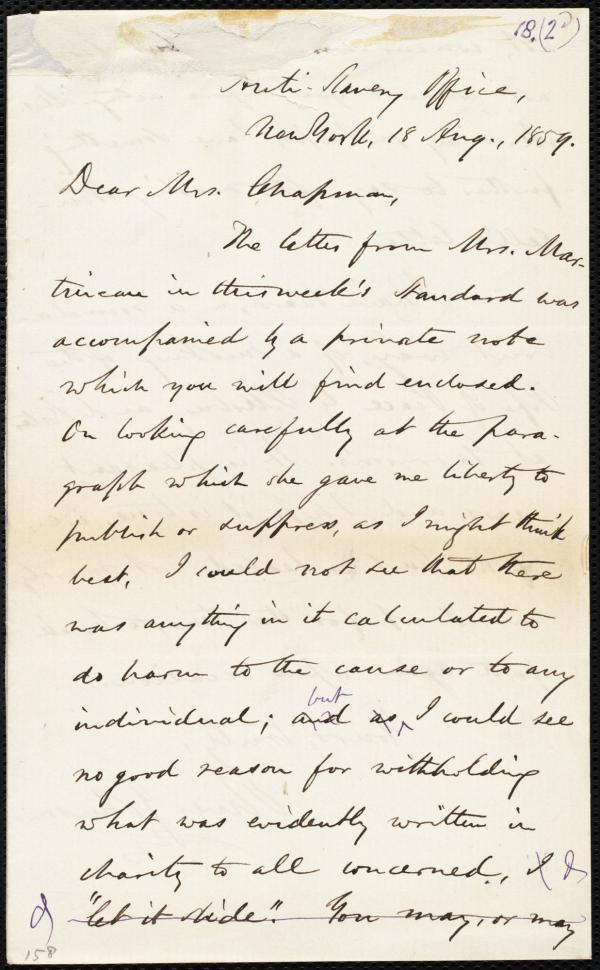 18.(2)
Anti-Slavery Office,
New York, 18 Aug., 1859.
Dear Mrs. Chapman,
The letter from Mrs. Mar-
tineau in this week's Standard was
accompanied by a private note
which you will find enclosed.
On looking carefully at the para-
graph which she gave me liberty to
publish or suppress, as I might think
best, I could not see that there
was anything in it calculated to
do harm to the cause or to any
but
individual; and as I could see
no good reason for withholding
what was evidently written in
charity to all concerned, I
"let it slide". You may, or may
158